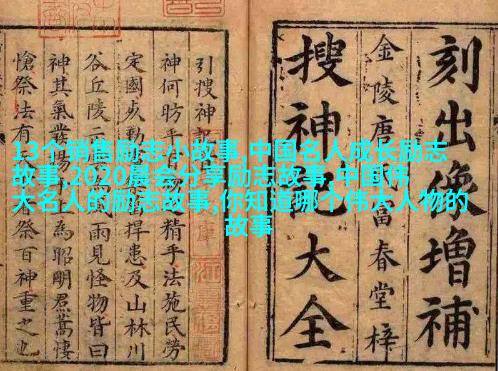 13个销售励志小故事,中国名人成长励志
故事,2020晨会分享励志故事,中国伟
大名人的励志故事,你知道哪个伟大人物的
故事
刻出像增補
金陵唐富春堂梓
搜神記大全
引搜神
神何昉乎精手法施民勞
定國捍患及山林川
谷丘陵見怪物皆曰
神其氣發揚為昭明焄蒿悽
愴祭法有祭百神重之也